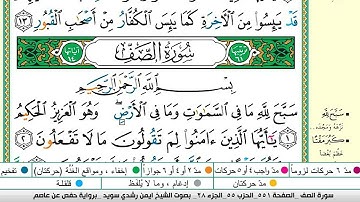 قَدْ يَئِسُوا۟ مِنَ ٱلْءَاخِرَةِ كَمَا يَئِسَ ٱلْكُفَّارُ مِنْ أَصْحَٰبِ ٱلْقُبُورِ ١٣
سُورَةُ الصَّفِّ
بِسْمِ ٱللَّهِ ٱلرَّحْمَٰنِ ٱلرَّحِيمِ
سَبَّحَ لِلَّهِ مَا فِى ٱلسَّمَٰوَٰتِ وَمَا فِى ٱلْأَرْضِ وَهُوَ ٱلْعَزِيزُ ٱلْحَكِيمُ
١ يَٰٓأَيُّهَا ٱلَّذِينَ ءَامَنُوا۟ لِمَ تَقُولُونَ مَا لَا تَفْعَلُونَ ٢
سَبَّحَ لِلَّهِ
كَبُرَ مَقْتًا
مدّ ٦ حركات لزوماً مدّ واجب ٤ أو ٥ حركات مدّ ٢ أو ٤ أو ٦ جوازاً إخفاء ، ومواقع الغُنَّة (حركتان) تفخيم
مدّ حركتان إدغام ، وما لا يُلفَظ قلقلة
سورة الصف . الصفحة ٥٥١ . الحزب ٥٥ . الجزء ٢٨ . بصوت الشيخ ايمن رشدي سويد . برواية حفص عن عاصم